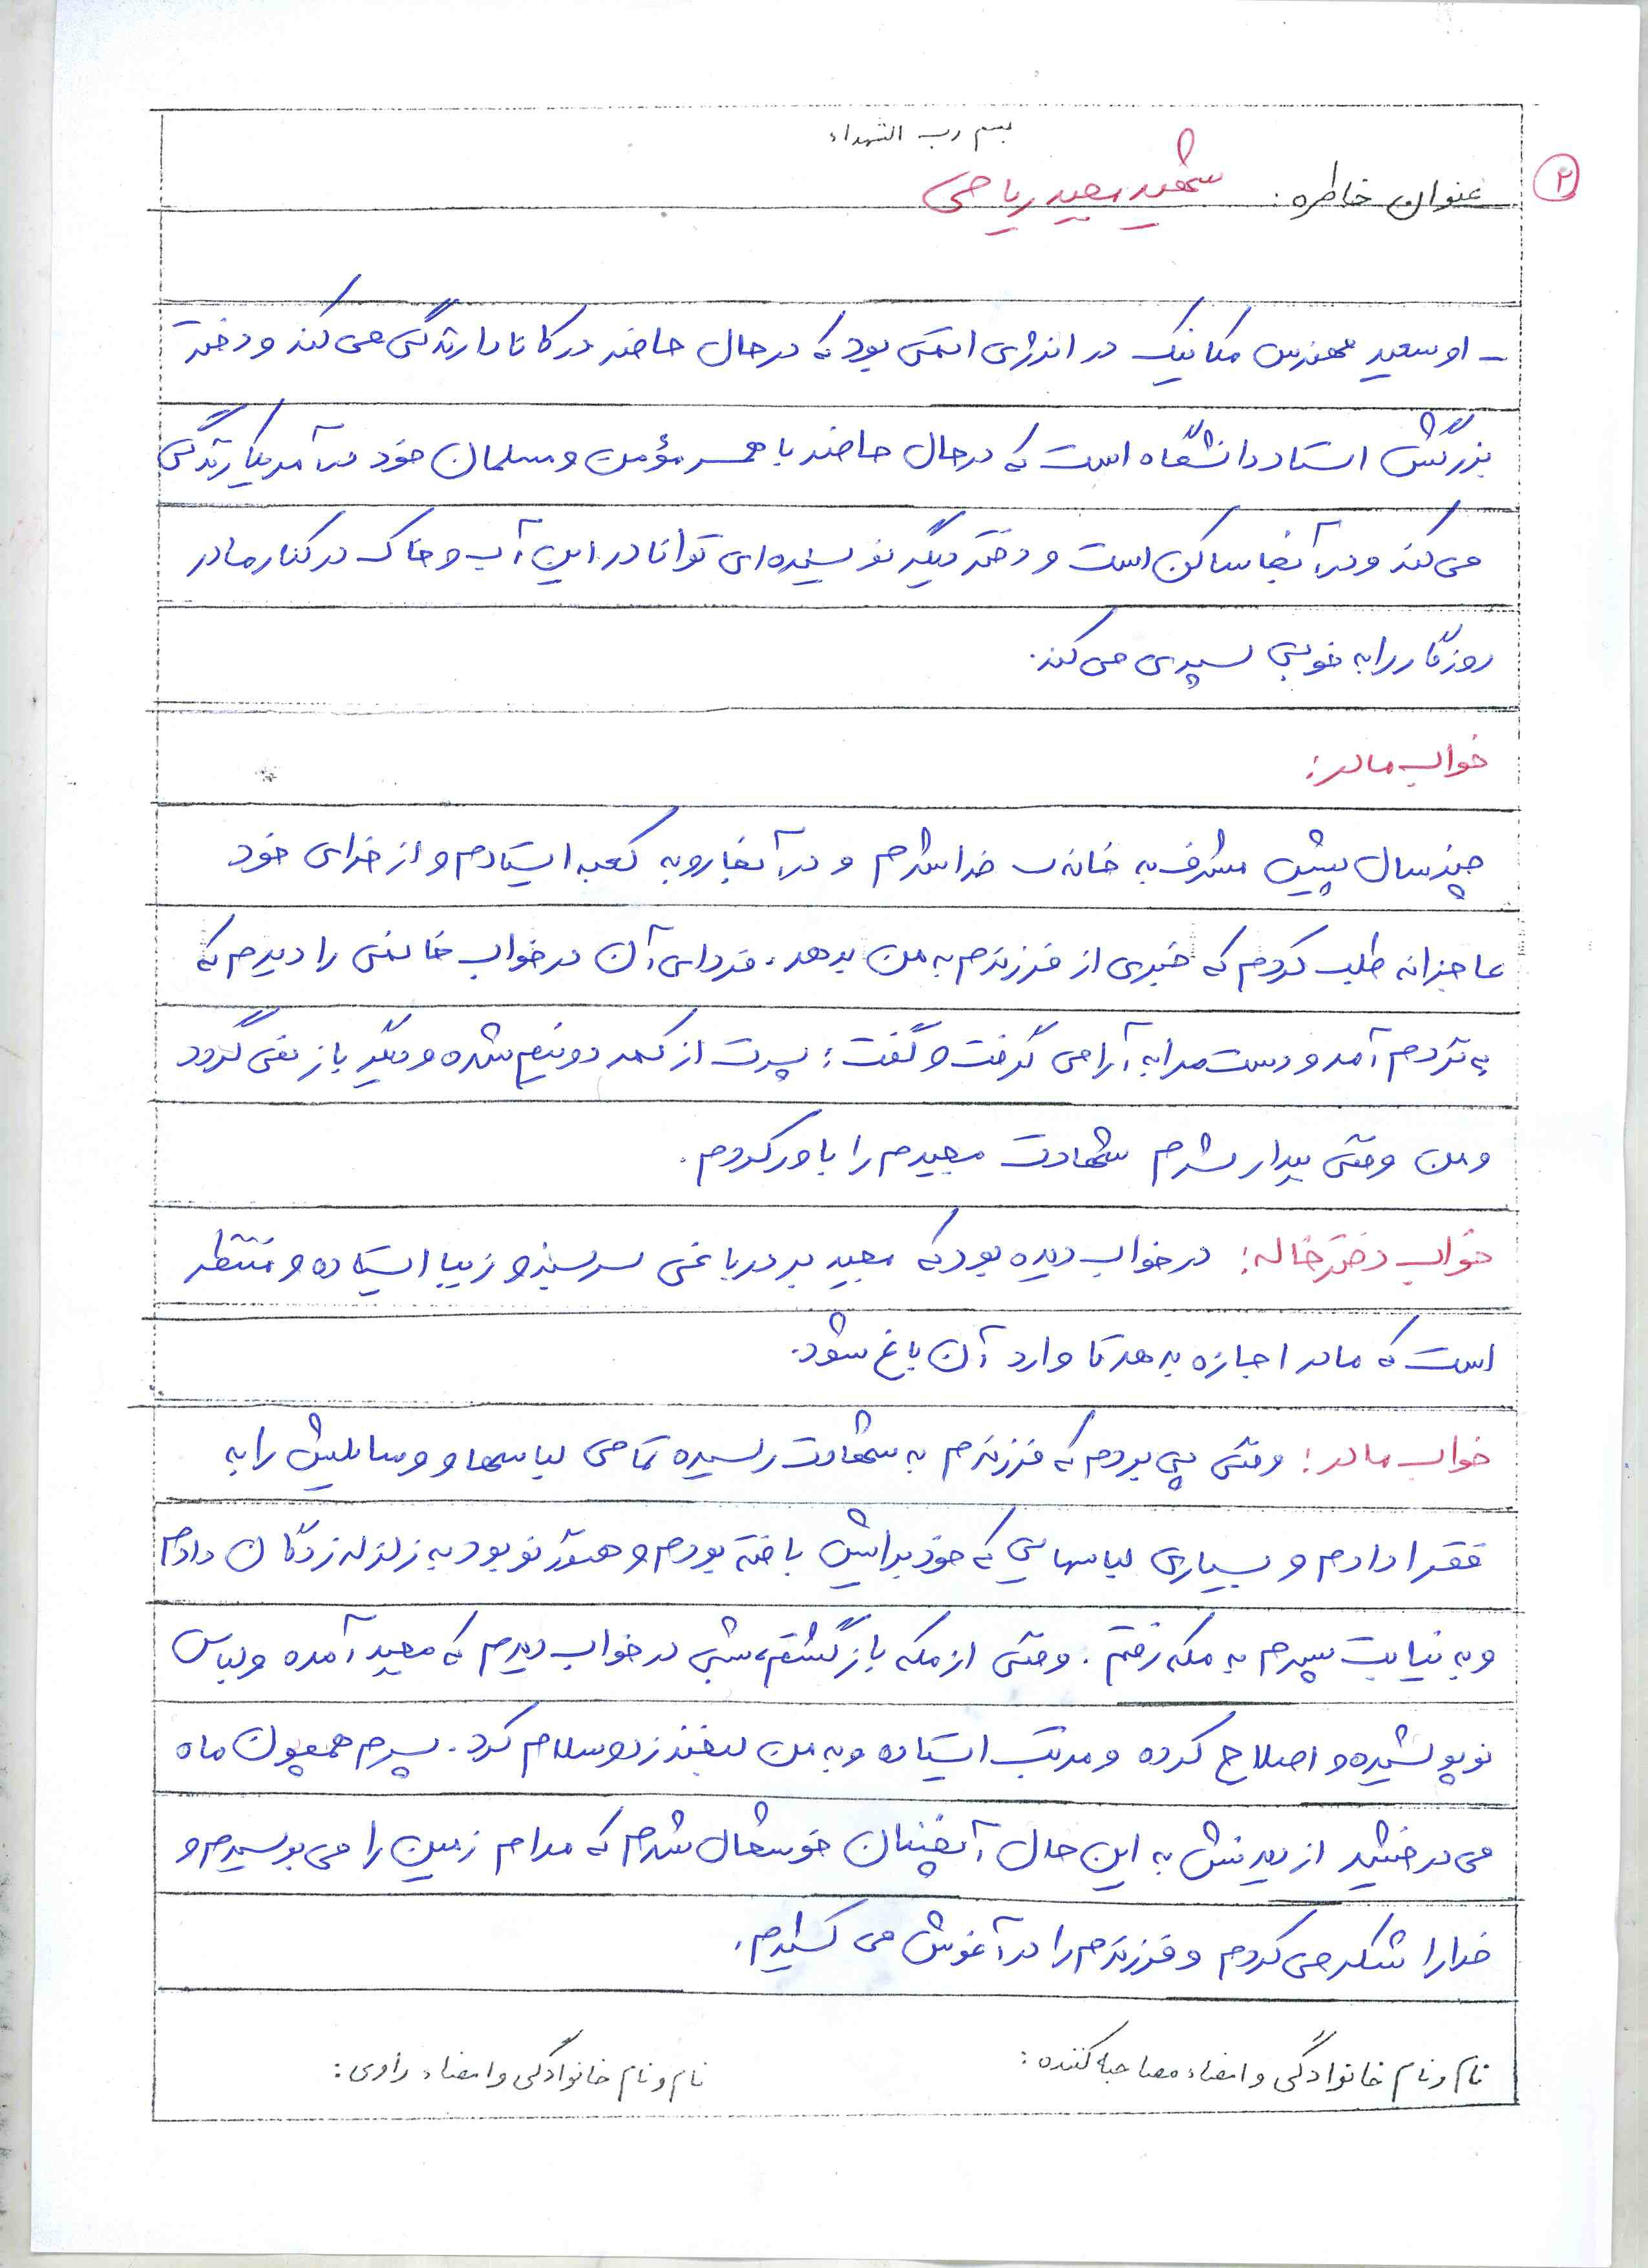 بسم رب الشهداء
۲
عنوان خاطره: شهید معید ریاحی
- او سعید مهندس مکانیک در انرژی اتمی بود که در حال حاضر در کانادا زندگی می کند و دختر
بزرگش استاد دانشگاه است که در حال حاضر با همسر مؤمن و مسلمان خود در آمریکا زندگی
می کند و در آنجا ساکن است و دختر دیگر نویسنده ای توانا در این آب و خاک در کنار مادر
روزگار را به خوبی سپری می کند.
خواب مادر:
چند سال پیش مشرف به خانه ی خدا شدم و در آنجا رو به کعبه ایستادم و از خدای خود
عاجزانه طلب کردم که خبری از فرزندم به من بدهد. فردای آن در خواب خانمی را دیدم که
به نزدم آمد و دست مرا به آرامی گرفت و گفت: پسرت از کمر دو نیم شده و دیگر باز نمی گردد
و من وقتی بیدار شدم شهادت معیدم را باور کردم.
خواب دختر خاله: در خواب دیده بود که معید بر در باغی سرسبز و زیبا ایستاده و منتظر
است که مادر اجازه بدهد تا وارد آن باغ شود.
خواب مادر: وقتی پی بردم که فرزندم به شهادت رسیده تمامی لباسها و وسایلش را به
فقرا دادم و بسیاری لباسهایی که خود برایش بافته بودم و هنوز نو بود به زلزله زدگان دادم
و به نیابت پسرم به مکه رفتم. وقتی از مکه بازگشتم، شبی در خواب دیدم که معید آمده و لباس
نو پوشیده و اصلاح کرده و مرتب ایستاده و به من لبخند زد و سلام کرد. پسرم همچون ماه
می درخشید از دیدنش به این حال آنچنان خوشحال شدم که مدام زمین را می بوسیدم و
خدا را شکر می کردم و فرزندم را در آغوش می کشیدم.
نام و نام خانوادگی و امضاء مصاحبه کننده:
نام و نام خانوادگی و امضاء راوی: